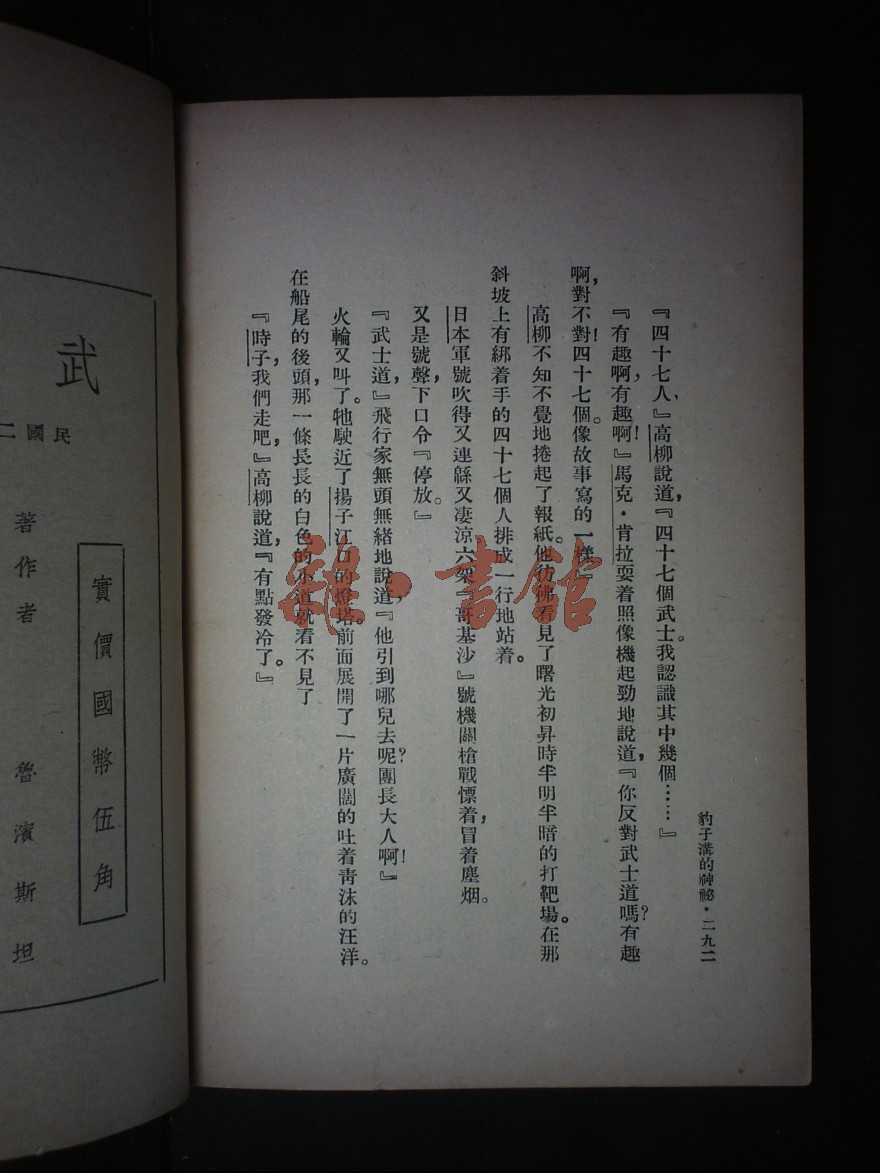 豹子溝的神祕・二九二
『四十七人，』高柳說道，『四十七個武士。我認識其中幾個……』
『有趣啊，有趣啊！』馬克・肯拉耍着照像機起勁地說道，『你反對武士道嗎？有趣
啊，對不對！四十七個。像故事寫的一樣』
高柳不知不覺地捲起了報紙。他彷彿看見了曙光初昇時半明半暗的打靶場。在那
斜坡上有綁着手的四十七個人排成一行地站着。
日本軍號吹得又連緜又凄涼六架『哥基沙』號機關槍戰慄着，冒着塵烟。
又是號聲，下口令『停放。』
『武士道，』飛行家無頭無緒地說道，『他引到哪兒去呢？團長大人啊！』
火輪又叫了。牠駛近了揚子江口的燈塔。前面展開了一片廣闊的吐着靑沫的汪洋。
在船尾的後頭，那一條長長的白色的小道就看不見了
『時子，我們走吧，』高柳說道，『有點發冷了。』
武
民國二
實價國幣伍角
著作者 魯濱斯坦
雜・書館